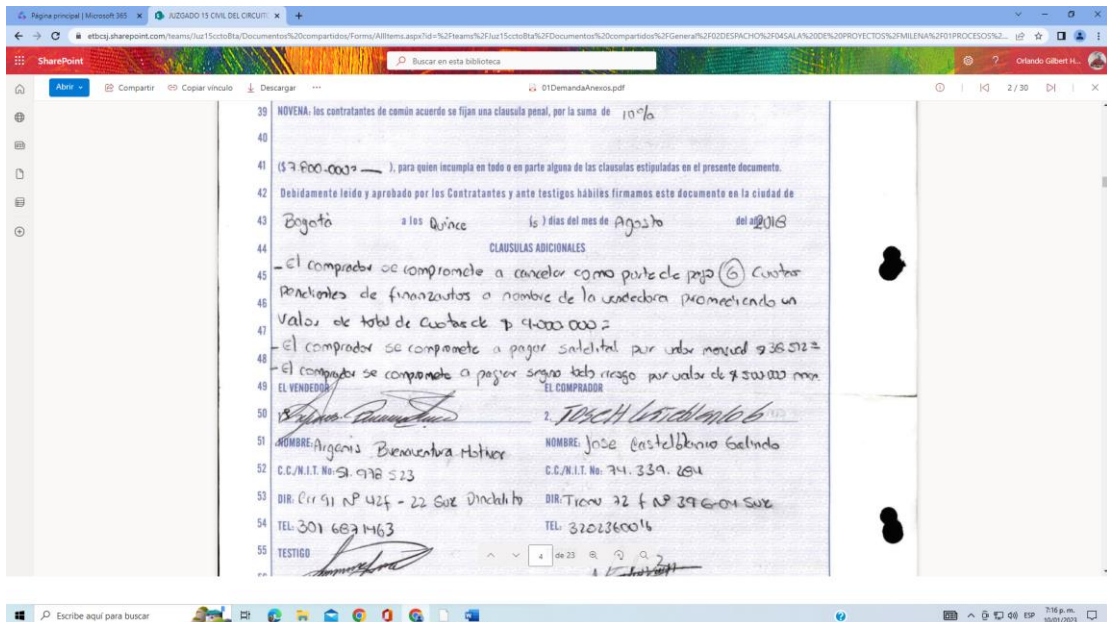 Página principal | Microsoft 365
JUZGADO 15 CIVIL DEL CIRCUIT
etbcsj.sharepoint.com/teams/Juz15cctoBta/Documentos%20compartidos/Forms/AllItems.aspx?id=%2Fteams%2FJuz15cctoBta%2FDocumentos%20compartidos%2FGeneral%2F02DESPACHO%2F04SALA%20DE%20PROYECTOS%2FMILENA%2F01PROCESOS%2...
SharePoint
Buscar en esta biblioteca
Orlando Gilbert H...
Abrir
Compartir
Copiar vínculo
Descargar
01DemandaAnexos.pdf
2 / 30
39 NOVENA: los contratantes de común acuerdo se fijan una clausula penal, por la suma de 10%
40
41 ($ 7.800.000= ), para quien incumpla en todo o en parte alguna de las clausulas estipuladas en el presente documento.
42 Debidamente leido y aprobado por los Contratantes y ante testigos hábiles firmamos este documento en la ciudad de
43 Bogotá a los Quince ) días del mes de Agosto del año
44 CLAUSULAS ADICIONALES
45 - El comprador se compromete a cancelar como parte de pago (6) Cuotas
46 Pendientes de finanzautos a nombre de la vendedora promediando un
47 Valor de total de Cuotas de $ 9.000.000=
48 - El comprador se compromete a pagar satelital por valor mensual $ 36.512=
- El comprador se compromete a pagar todo riesgo por valor de $ 500.000
49 EL VENDEDOR EL COMPRADOR
50 2.
51 NOMBRE: Arganis Buenaventura NOMBRE: Jose Castelblanco Galindo
52 C.C./N.I.T. No: 51.978 523 C.C./N.I.T. No: 74.339.264
53 DIR: Crr 91 Nº 42f - 22 Sur Dindalito DIR: Trans 72 f Nº 39 Sur
54 TEL: 301 6671463 TEL:
55 TESTIGO
4 de 23
Escribe aquí para buscar
ESP
7:16 p. m.
10/01/2023